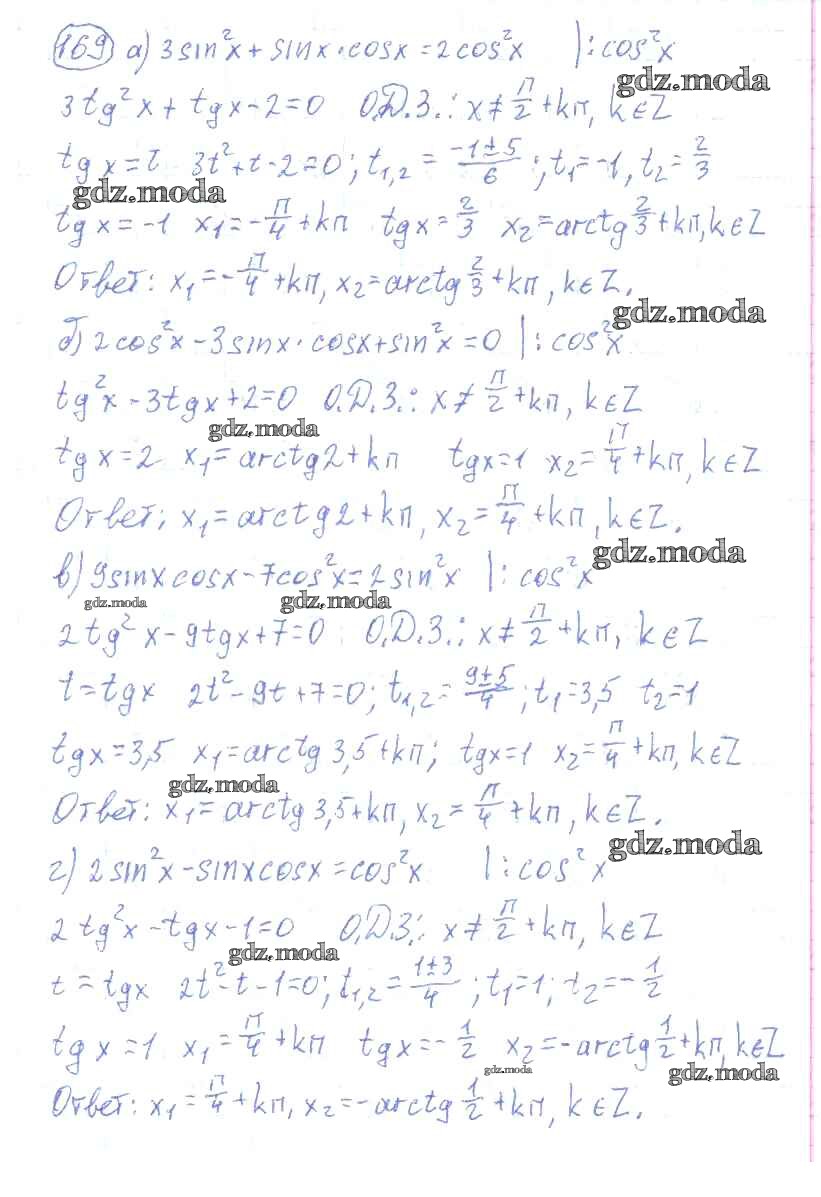 169 а) 3sin²x + sinx·cosx = 2cos²x |:cos²x
gdz.moda
3tg²x + tgx - 2 = 0 О.Д.З.: x ≠ π/2 + kπ, k∈Z
tgx = t 3t² + t - 2 = 0; t₁,₂ = (-1±5)/6; t₁ = -1, t₂ = 2/3
gdz.moda
tgx = -1 x₁ = -π/4 + kπ tgx = 2/3 x₂ = arctg 2/3 + kπ, k∈Z
Ответ: x₁ = -π/4 + kπ, x₂ = arctg 2/3 + kπ, k∈Z.
gdz.moda
б) 2cos²x - 3sinx·cosx + sin²x = 0 |:cos²x
tg²x - 3tgx + 2 = 0 О.Д.З.: x ≠ π/2 + kπ, k∈Z
gdz.moda
tgx = 2 x₁ = arctg2 + kπ tgx = 1 x₂ = π/4 + kπ, k∈Z
Ответ: x₁ = arctg2 + kπ, x₂ = π/4 + kπ, k∈Z.
gdz.moda
в) 9sinxcosx - 7cos²x = 2sin²x |:cos²x
gdz.moda gdz.moda
2tg²x - 9tgx + 7 = 0 О.Д.З.: x ≠ π/2 + kπ, k∈Z
t = tgx 2t² - 9t + 7 = 0; t₁,₂ = (9±5)/4; t₁ = 3,5 t₂ = 1
tgx = 3,5 x₁ = arctg 3,5 + kπ; tgx = 1 x₂ = π/4 + kπ, k∈Z
gdz.moda
Ответ: x₁ = arctg 3,5 + kπ, x₂ = π/4 + kπ, k∈Z.
gdz.moda
г) 2sin²x - sinxcosx = cos²x |:cos²x
2tg²x - tgx - 1 = 0 О.Д.З.: x ≠ π/2 + kπ, k∈Z
gdz.moda
t = tgx 2t² - t - 1 = 0; t₁,₂ = (1±3)/4; t₁ = 1; t₂ = -1/2
tgx = 1 x₁ = π/4 + kπ tgx = -1/2 x₂ = -arctg 1/2 + kπ, k∈Z
gdz.moda gdz.moda
Ответ: x₁ = π/4 + kπ, x₂ = -arctg 1/2 + kπ, k∈Z.